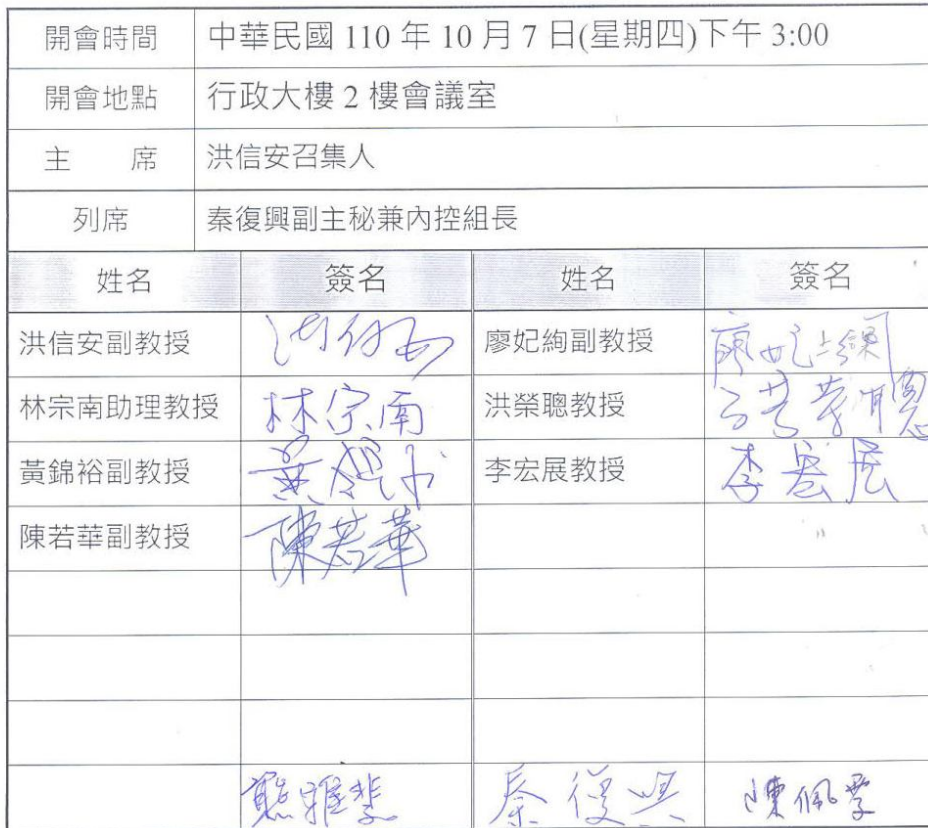 開會時間 中華民國 110 年 10 月 7 日(星期四)下午 3:00
開會地點 行政大樓 2 樓會議室
主 席 洪信安召集人
列席 秦復興副主秘兼內控組長
姓名 簽名 姓名 簽名
洪信安副教授 洪信安 廖妃絢副教授 廖妃絢
林宗南助理教授 林宗南 洪榮聰教授 洪榮聰
黃錦裕副教授 李宏展教授 李宏展
陳若華副教授 陳若華
秦復興